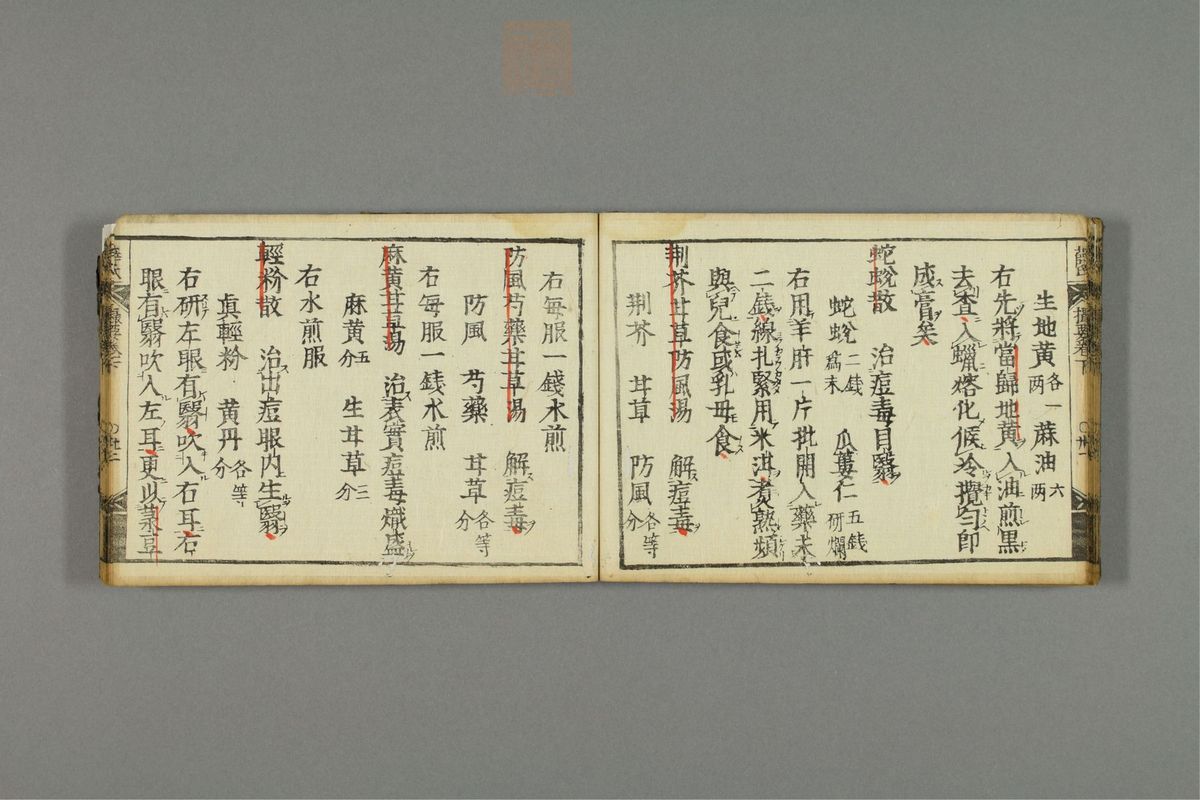 生地黄 各一两 蔴油 六两
右先將當歸地黄入油煎黒
去査入蠟熔化候冷攪勻即
成膏矣
蛇蛻散 治痘毒目翳
蛇蛻 二錢爲末 瓜蔞仁 五錢研爛
右用羊肝一片批開入藥末
二錢線扎緊用米泔煮熟頻
與兒食或乳母食
荆芥甘草防風湯 解痘毒
荆芥 甘草 防風 各等分
右每服一錢水煎
防風芍藥甘草湯 解痘毒
防風 芍藥 甘草 各等分
右每服一錢水煎
麻黄甘草湯 治表實痘毒熾盛
麻黄 五分 生甘草 三分
右水煎服
輕粉散 治出痘眼内生翳
眞輕粉 黄丹 各等分
右研左眼有翳吹入右耳右
眼有翳吹入左耳更以菉豆